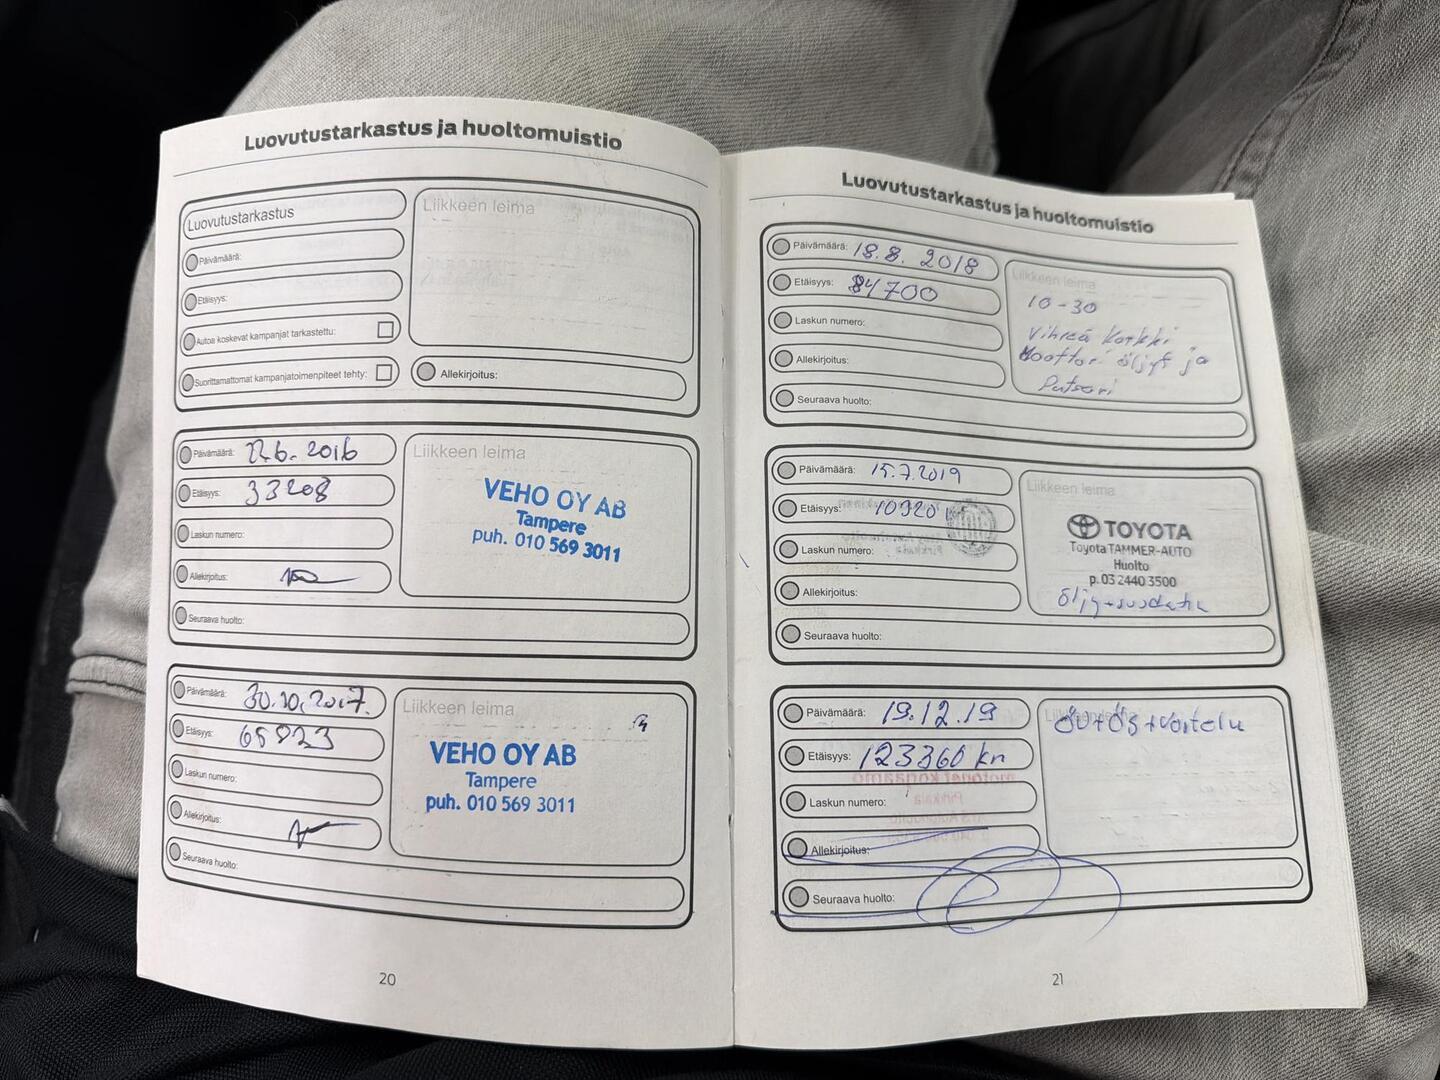 Luovutustarkastus ja huoltomuistio
Luovutustarkastus
Päivämäärä:
Etäisyys:
Autoa koskevat kampanjat tarkastettu:
Suorittamattomat kampanjatoimenpiteet tehty:
Liikkeen leima
Allekirjoitus:
Päivämäärä: 22.6.2016
Etäisyys: 33208
Laskun numero:
Allekirjoitus:
Seuraava huolto:
Liikkeen leima
VEHO OY AB
Tampere
puh. 010 569 3011
Päivämäärä: 30.10.2017.
Etäisyys: 65923
Laskun numero:
Allekirjoitus:
Seuraava huolto:
Liikkeen leima
VEHO OY AB
Tampere
puh. 010 569 3011
20
Luovutustarkastus ja huoltomuistio
Päivämäärä: 18.8. 2018
Etäisyys: 84700
Laskun numero:
Allekirjoitus:
Seuraava huolto:
Liikkeen leima
10-30
Vihreä korkki
Moottori öljyt ja
Päivämäärä: 15.7.2019
Etäisyys:
Laskun numero:
Allekirjoitus:
Seuraava huolto:
Liikkeen leima
TOYOTA
Toyota TAMMER-AUTO
Huolto
p. 03 2440 3500
Öljy+suodatin
Päivämäärä: 19.12.19
Etäisyys: 123360 km
Laskun numero:
Allekirjoitus:
Seuraava huolto:
öv+ös+voitelu
21